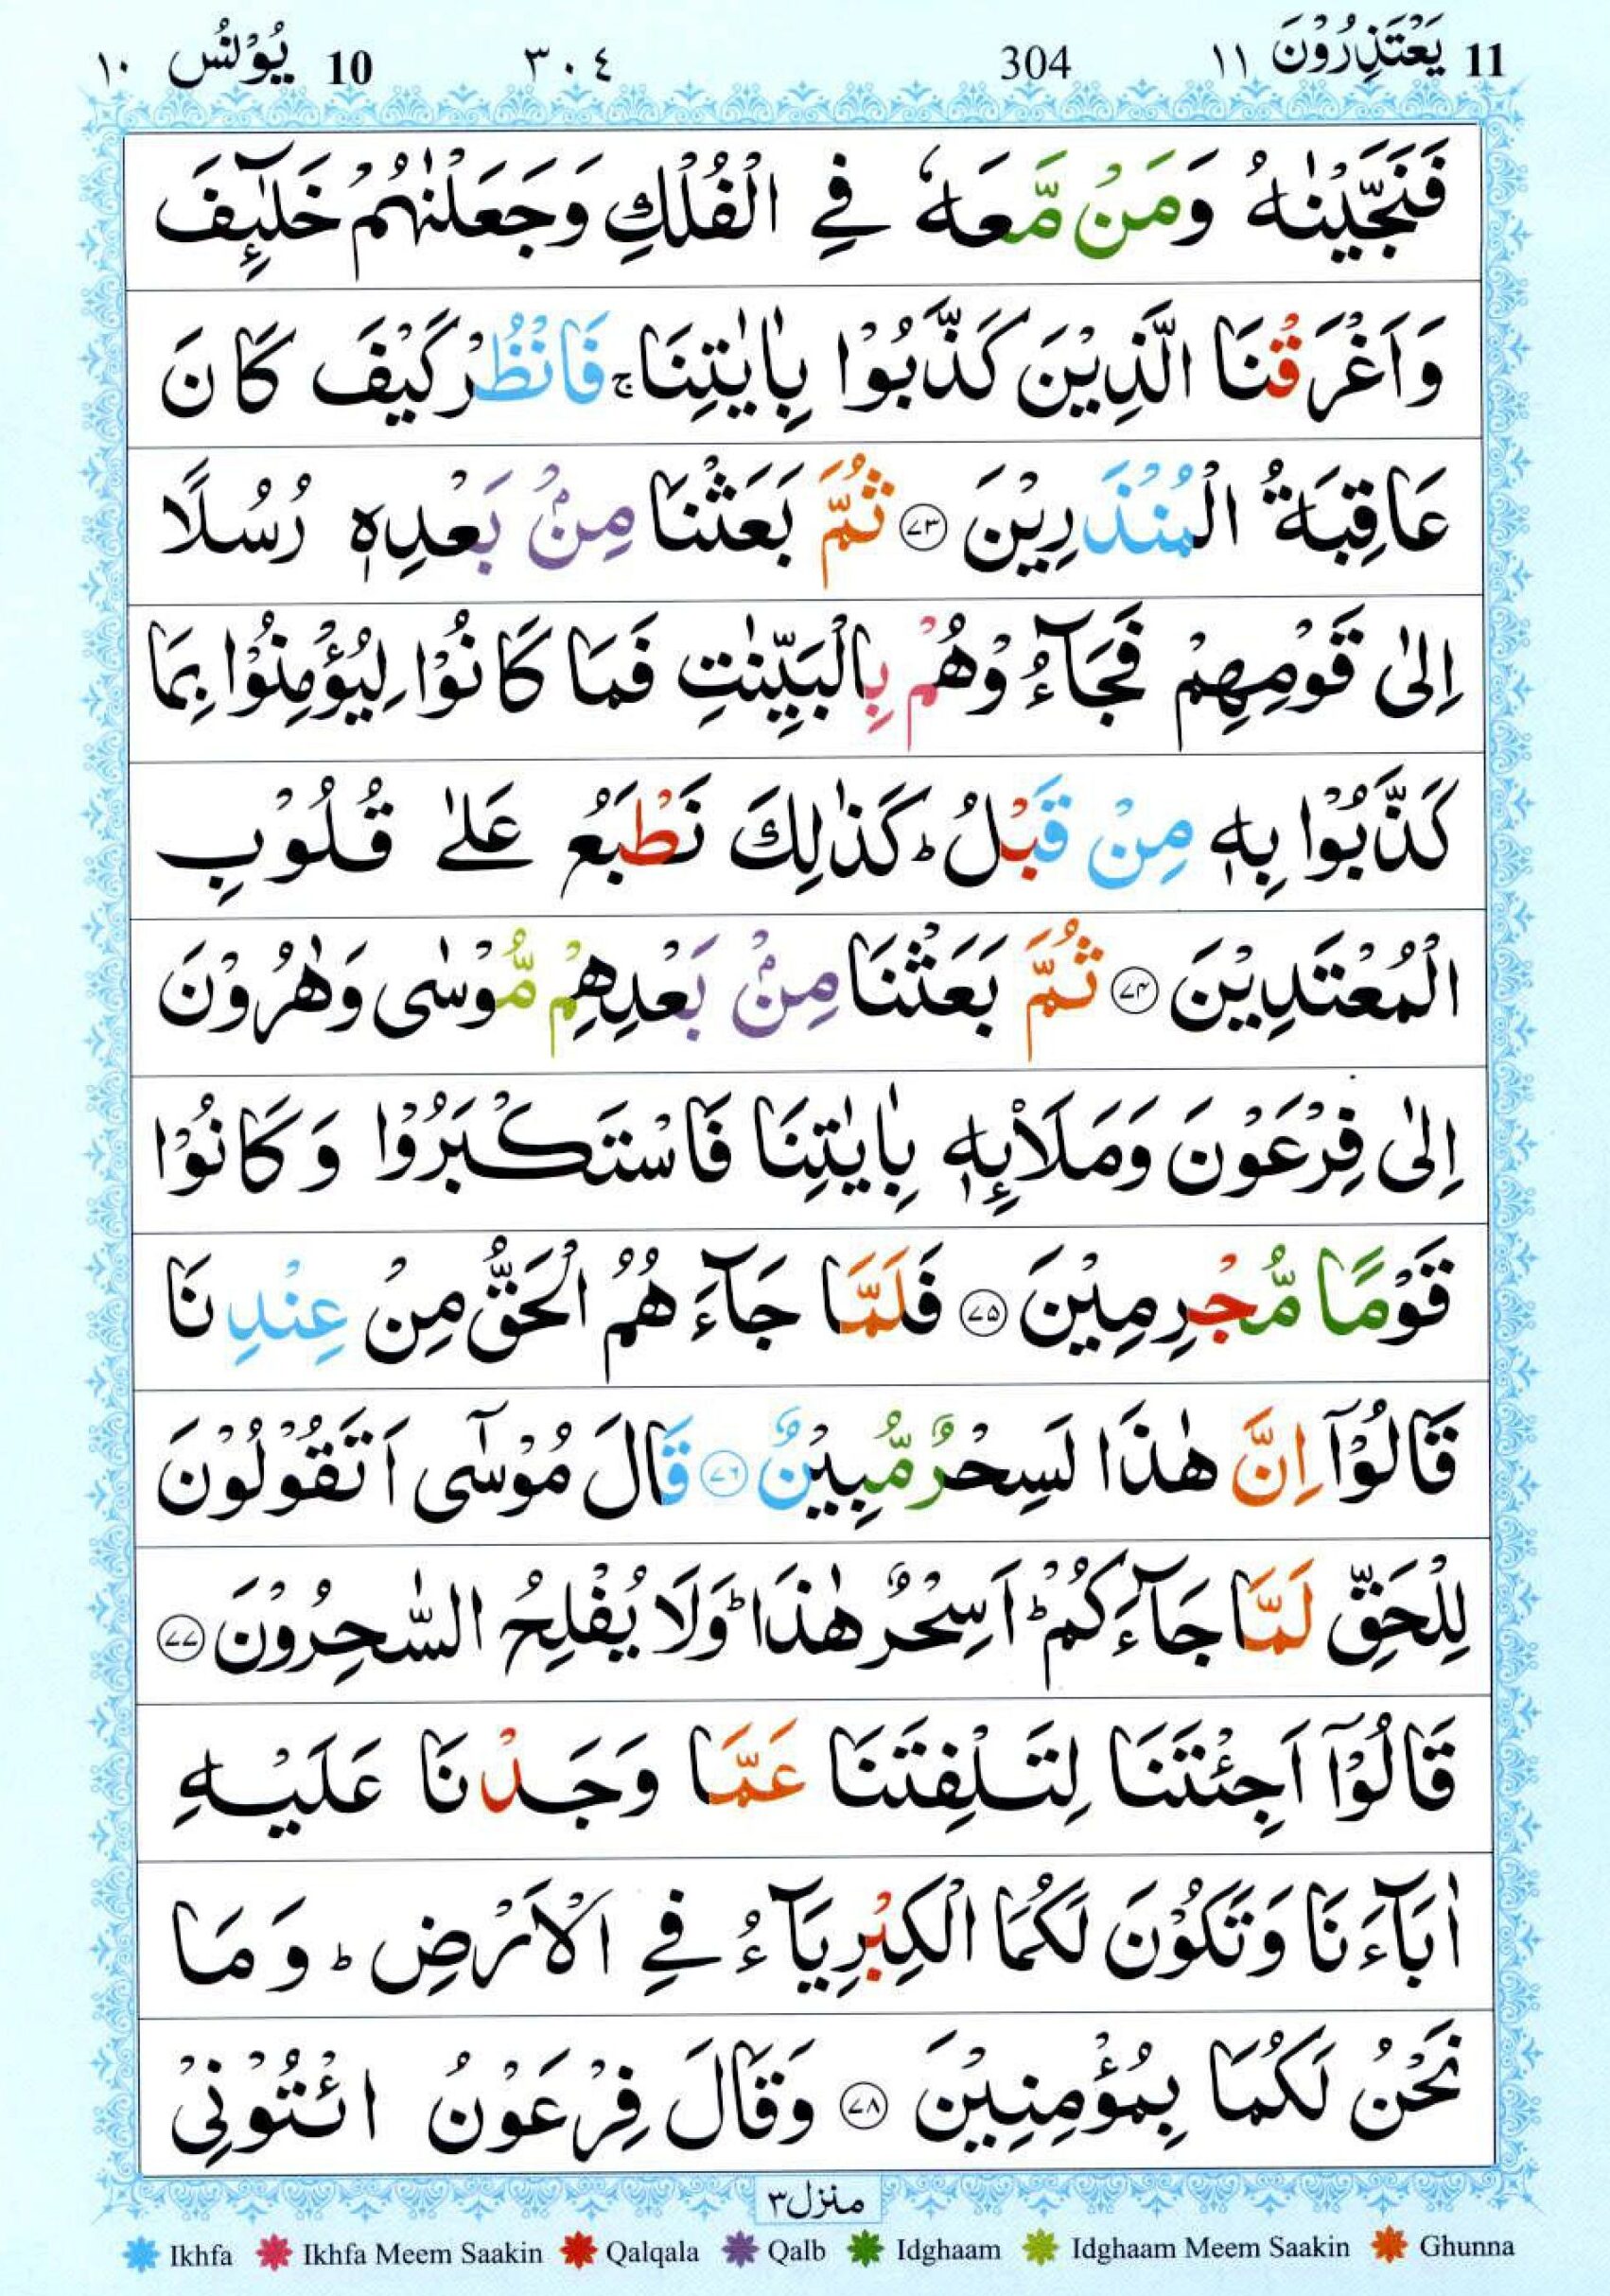 11 يَعْتَذِرُوْنَ ١١ 304 ٣٠٤ 10 يُوْنُس ١٠
فَنَجَّيْنٰهُ وَمَنْ مَّعَهٗ فِي الْفُلْكِ وَجَعَلْنٰهُمْ خَلٰٓئِفَ
وَاَغْرَقْنَا الَّذِيْنَ كَذَّبُوْا بِاٰيٰتِنَا ۚ فَانْظُرْ كَيْفَ كَانَ
عَاقِبَةُ الْمُنْذَرِيْنَ ﴿۷۳﴾ ثُمَّ بَعَثْنَا مِنْۢ بَعْدِهٖ رُسُلًا
اِلٰى قَوْمِهِمْ فَجَآءُوْهُمْ بِالْبَيِّنٰتِ فَمَا كَانُوْا لِيُؤْمِنُوْا بِمَا
كَذَّبُوْا بِهٖ مِنْ قَبْلُ ؕ كَذٰلِكَ نَطْبَعُ عَلٰى قُلُوْبِ
الْمُعْتَدِيْنَ ﴿۷۴﴾ ثُمَّ بَعَثْنَا مِنْۢ بَعْدِهِمْ مُّوْسٰى وَهٰرُوْنَ
اِلٰى فِرْعَوْنَ وَمَلَا۟ئِهٖ بِاٰيٰتِنَا فَاسْتَكْبَرُوْا وَكَانُوْا
قَوْمًا مُّجْرِمِيْنَ ﴿۷۵﴾ فَلَمَّا جَآءَهُمُ الْحَقُّ مِنْ عِنْدِنَا
قَالُوْٓا اِنَّ هٰذَا لَسِحْرٌ مُّبِيْنٌ ﴿۷۶﴾ قَالَ مُوْسٰٓى اَتَقُوْلُوْنَ
لِلْحَقِّ لَمَّا جَآءَكُمْ ؕ اَسِحْرٌ هٰذَا ؕ وَلَا يُفْلِحُ السّٰحِرُوْنَ ﴿۷۷﴾
قَالُوْٓا اَجِئْتَنَا لِتَلْفِتَنَا عَمَّا وَجَدْنَا عَلَيْهِ
اٰبَآءَنَا وَتَكُوْنَ لَكُمَا الْكِبْرِيَآءُ فِي الْاَرْضِ ؕ وَمَا
نَحْنُ لَكُمَا بِمُؤْمِنِيْنَ ﴿۷۸﴾ وَقَالَ فِرْعَوْنُ ائْتُوْنِيْ
منزل ۳
Ikhfa Ikhfa Meem Saakin Qalqala Qalb Idghaam Idghaam Meem Saakin Ghunna